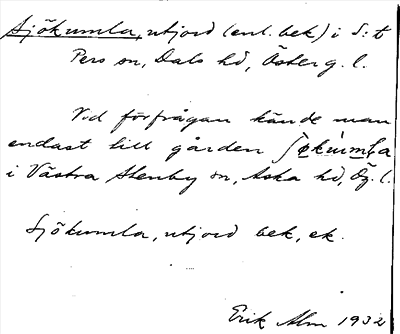 Sjökumla, utjord (enl. bek) i S:t
Pers sn, Dals hd, Österg. l.
Vid förfrågan kände man
endast till gården ʃøkùmla
i Västra Stenby sn, Aska hd, Ög. l.
Sjökumla, utjord bek, ek.
Erik Alm 1932